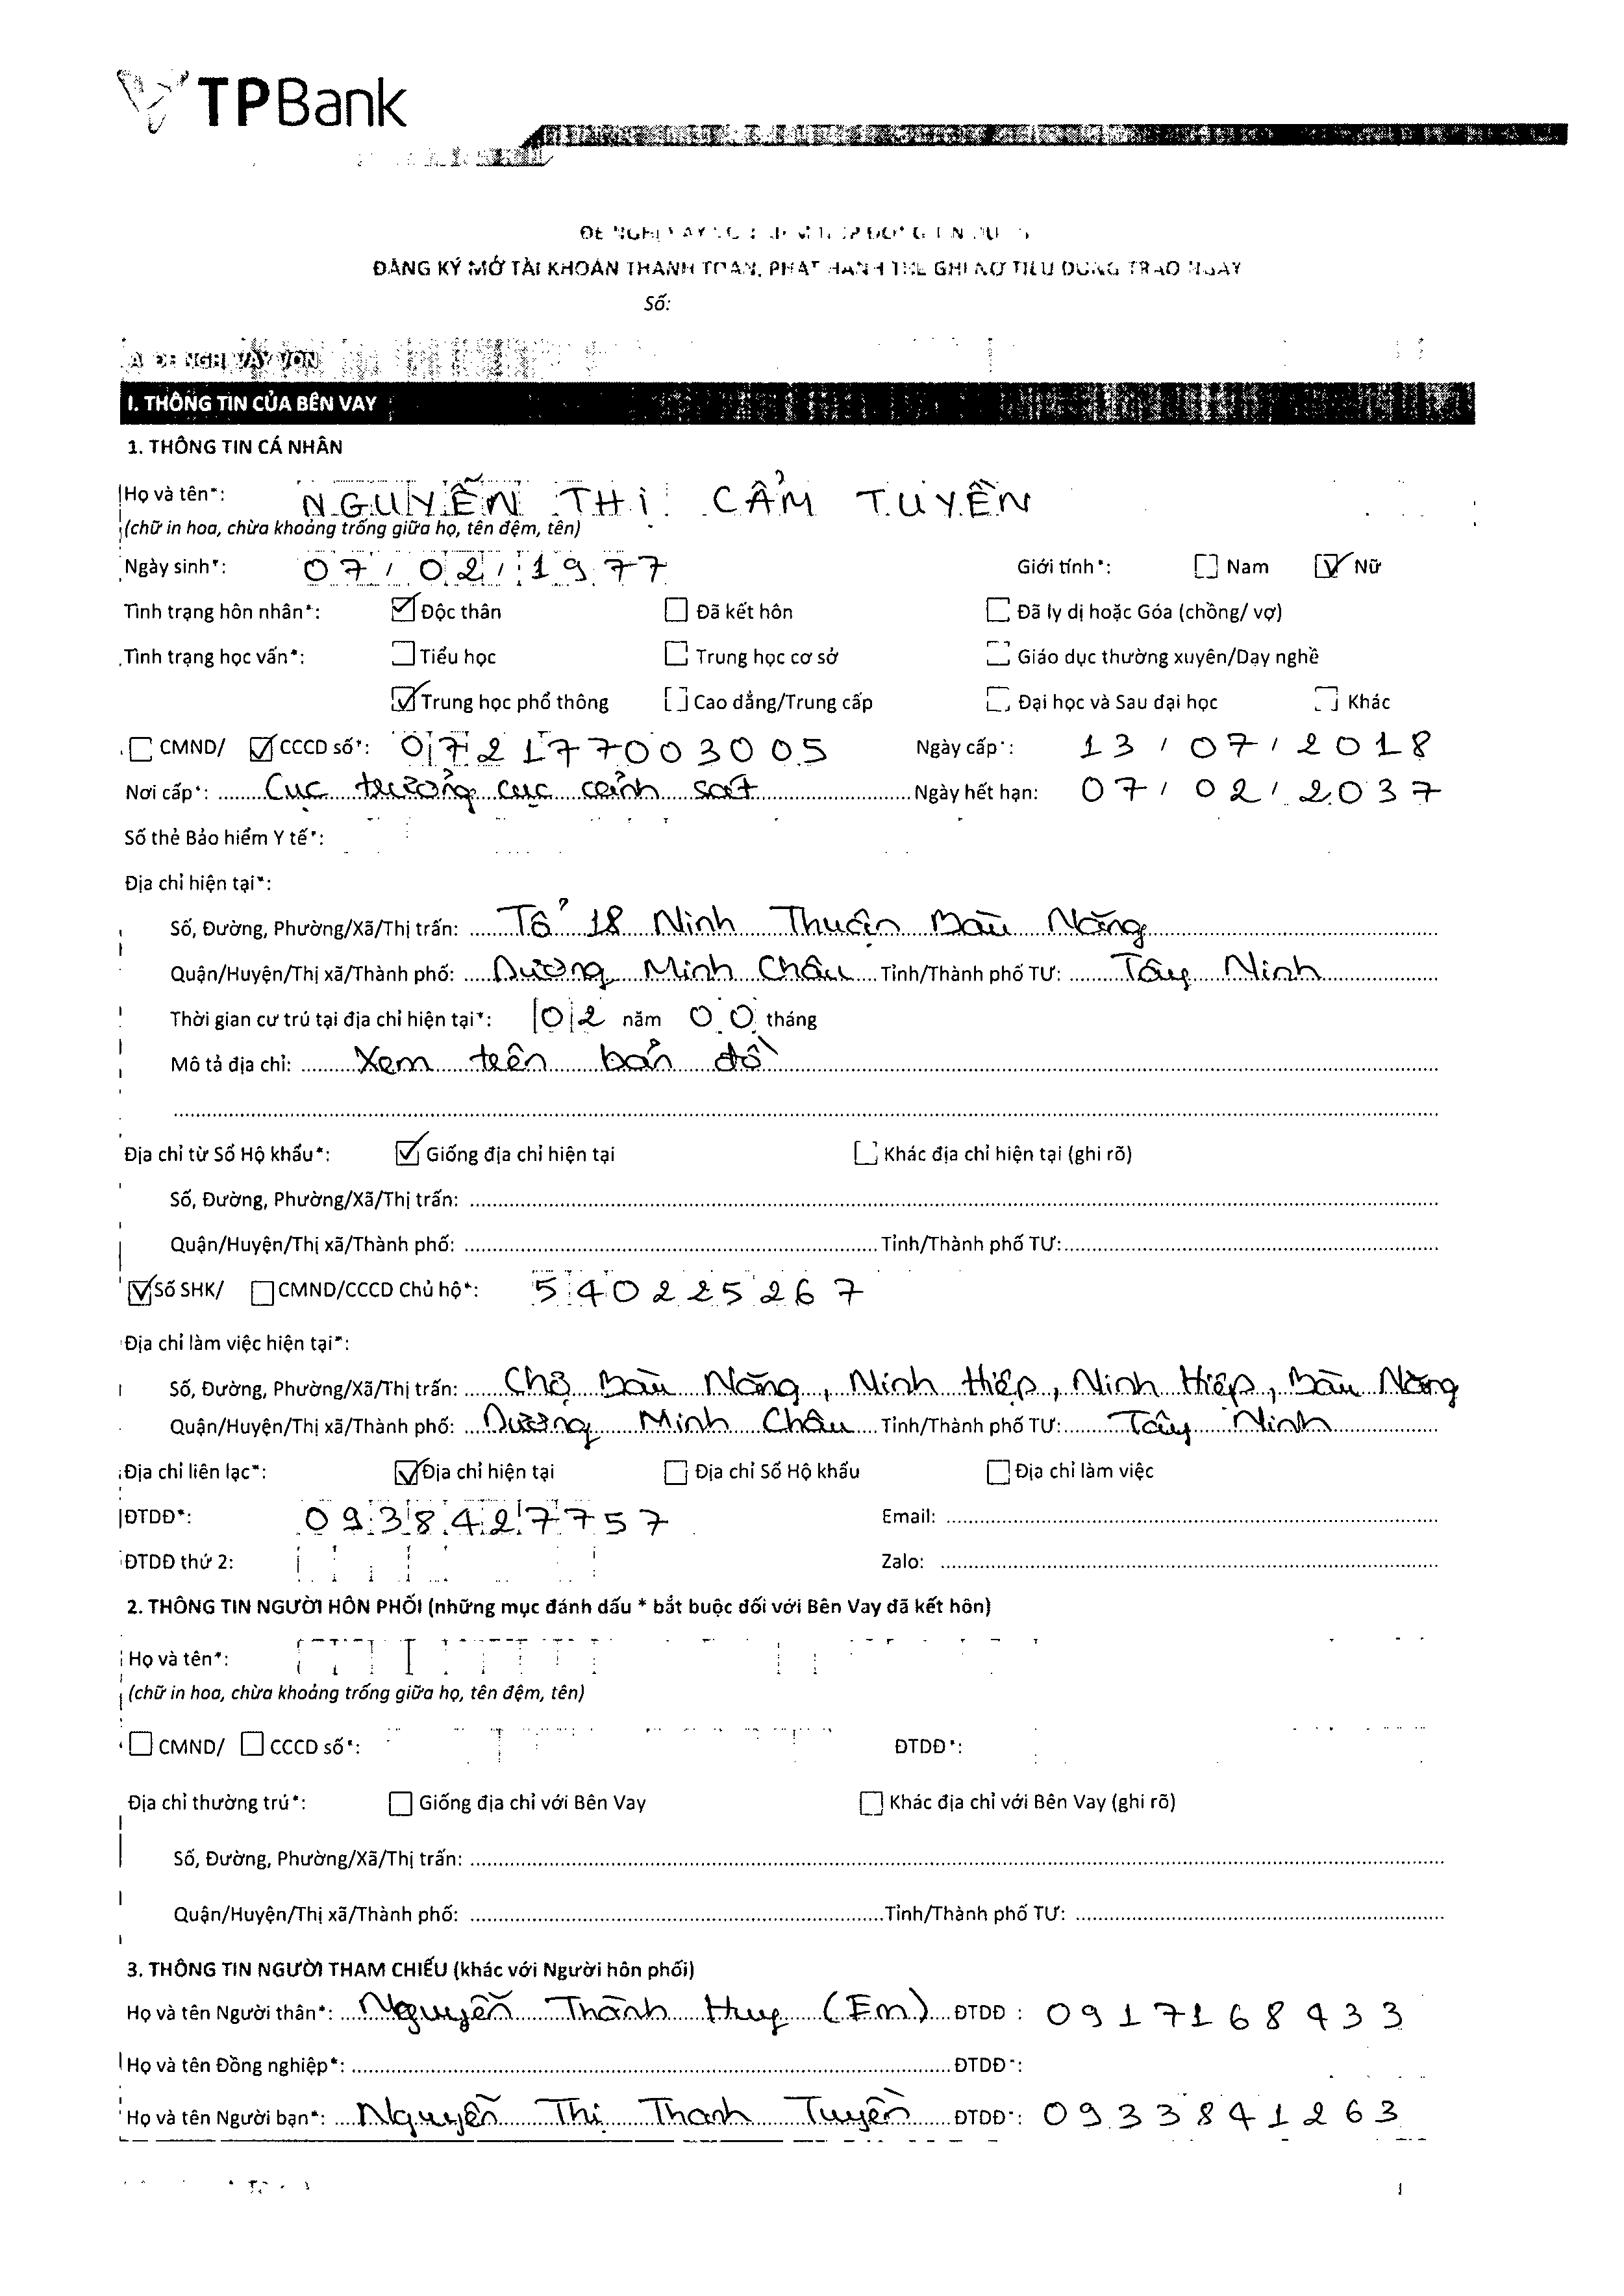 TPBank
ĐĂNG KÝ MỞ TÀI KHOẢN THANH TOÁN, PHÁT HÀNH THẺ GHI NỢ TIÊU DÙNG TRAO NGAY
Số:
A. ĐỀ NGHỊ VAY VỐN
I. THÔNG TIN CỦA BÊN VAY
1. THÔNG TIN CÁ NHÂN
Họ và tên*: NGUYỄN THỊ CẨM TUYỀN
(chữ in hoa, chừa khoảng trống giữa họ, tên đệm, tên)
Ngày sinh*: 07/02/1977 Giới tính*: Nam Nữ
Tình trạng hôn nhân*: Độc thân Đã kết hôn Đã ly dị hoặc Góa (chồng/ vợ)
Tình trạng học vấn*: Tiểu học Trung học cơ sở Giáo dục thường xuyên/Dạy nghề
Trung học phổ thông Cao đẳng/Trung cấp Đại học và Sau đại học Khác
CMND/ CCCD số*: 072177003005 Ngày cấp*: 13/07/2018
Nơi cấp*: Cục trưởng cục cảnh sát Ngày hết hạn: 07/02/2037
Số thẻ Bảo hiểm Y tế*:
Địa chỉ hiện tại*:
Số, Đường, Phường/Xã/Thị trấn: Tổ 18 Ninh Thuận Bàu Năng
Quận/Huyện/Thị xã/Thành phố: Dương Minh Châu Tỉnh/Thành phố TƯ: Tây Ninh
Thời gian cư trú tại địa chỉ hiện tại*: 02 năm 00 tháng
Mô tả địa chỉ: Xem trên bản đồ
Địa chỉ từ Sổ Hộ khẩu*: Giống địa chỉ hiện tại Khác địa chỉ hiện tại (ghi rõ)
Số, Đường, Phường/Xã/Thị trấn:
Quận/Huyện/Thị xã/Thành phố: Tỉnh/Thành phố TƯ:
Số SHK/ CMND/CCCD Chủ hộ*: 540225267
Địa chỉ làm việc hiện tại*:
Số, Đường, Phường/Xã/Thị trấn: Chợ Bàu Năng, Ninh Hiệp, Ninh Hiệp, Bàu Năng
Quận/Huyện/Thị xã/Thành phố: Dương Minh Châu Tỉnh/Thành phố TƯ: Tây Ninh
Địa chỉ liên lạc*: Địa chỉ hiện tại Địa chỉ Sổ Hộ khẩu Địa chỉ làm việc
ĐTDĐ*: 0938427757 Email:
ĐTDĐ thứ 2: Zalo:
2. THÔNG TIN NGƯỜI HÔN PHỐI (những mục đánh dấu * bắt buộc đối với Bên Vay đã kết hôn)
Họ và tên*:
(chữ in hoa, chừa khoảng trống giữa họ, tên đệm, tên)
CMND/ CCCD số*: ĐTDĐ*:
Địa chỉ thường trú*: Giống địa chỉ với Bên Vay Khác địa chỉ với Bên Vay (ghi rõ)
Số, Đường, Phường/Xã/Thị trấn:
Quận/Huyện/Thị xã/Thành phố: Tỉnh/Thành phố TƯ:
3. THÔNG TIN NGƯỜI THAM CHIẾU (khác với Người hôn phối)
Họ và tên Người thân*: Nguyễn Thành Huy (Em) ĐTDĐ : 0917168433
Họ và tên Đồng nghiệp*: ĐTDĐ*:
Họ và tên Người bạn*: Nguyễn Thị Thanh Tuyền ĐTDĐ*: 0933841263
1